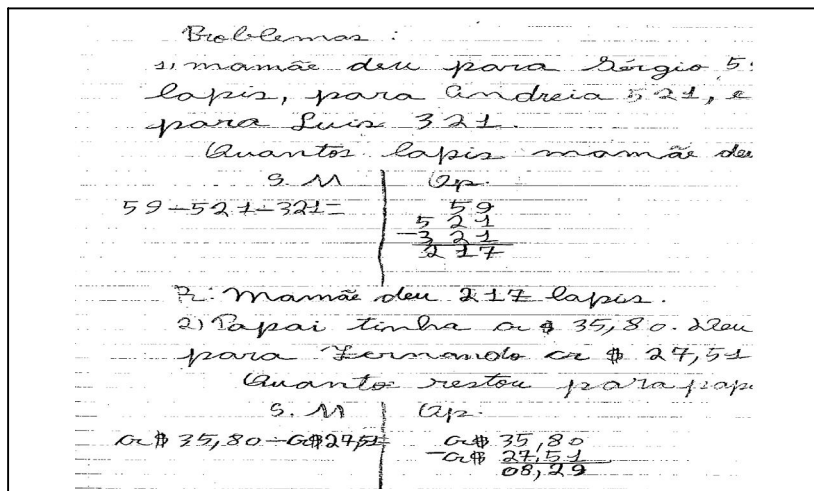 Problemas :
1) mamãe deu para Sérgio 5
lapis, para Andreia 521, e
para Luis 321.
Quantos lapis mamãe deu
S. M | Op.
59-521-321= | 59
521
-321
217
R: Mamãe deu 217 lapis.
2) Papai tinha cr $ 35,80. Deu
para Fernando cr $ 27,51
Quanto restou para pap
S. M | Op.
cr $ 35,80-cr$27,51= | cr$ 35,80
-cr$ 27,51
08,29